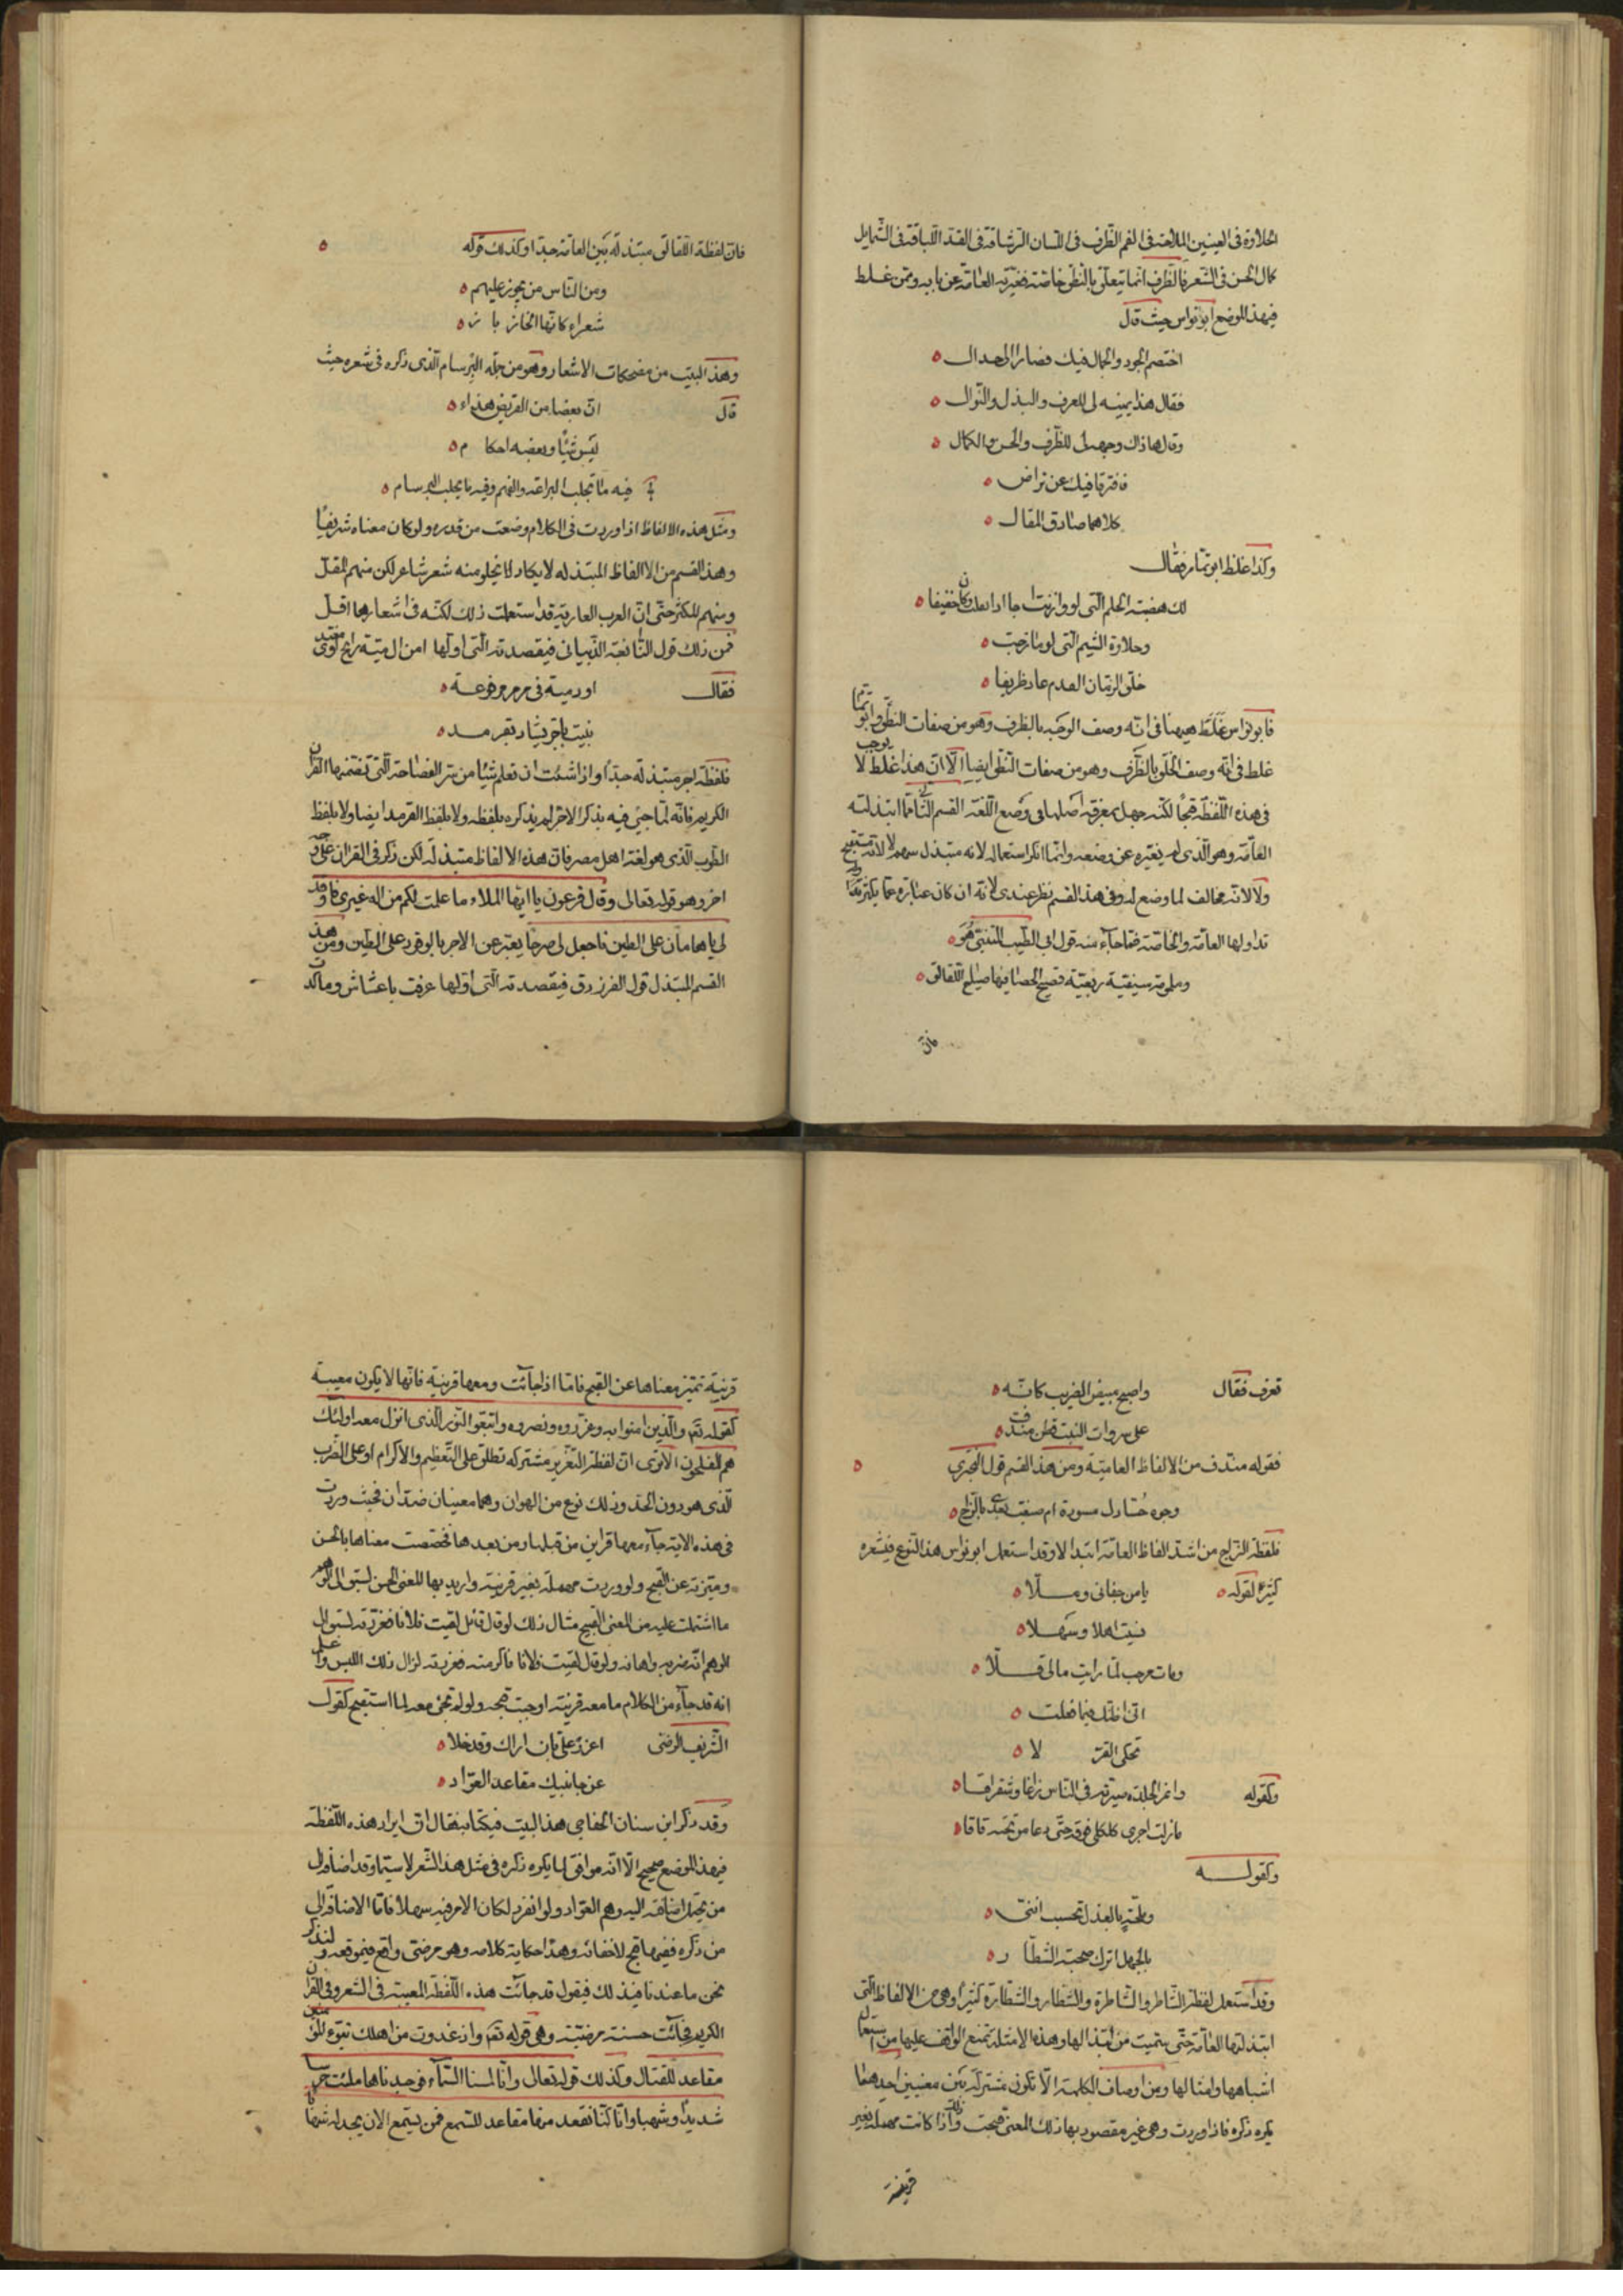 الحلاوة فى العينين الملاحة فى الفم الظرف فى اللسان الرشاقة فى القد اللباقة فى الشمايل
كمال الحسن فى الشعر فالظرف انما يتعلق بالنطق خاصة فغيرته العامة عن بابه وممن غلط
فى هذا الموضع ابو نواس حيث قال
اختصم الجود والجمال فيك فصارا الى جدال
فقال هذا يمينه لى للعرف والبذل والنوال
وقال هاذاك وجهه لى للظرف والحسن والكمال
فافترقا فيك عن تراض
كلاهما صادق المقال
وكذا غلط ابو تمام فقال
لك هضبة الحلم التى لو وازنت اجا اذا ثقلت وكان خفيفا
وحلاوة الشيم التى لو مازجت
خلق الزمان الفدم عاد ظريفا
فابو نواس غلط ههنا فى انه وصف الوجه بالظرف وهو من صفات النطق وابو تمام
غلط فى انه وصف الخلق بالظرف وهو من صفات النطق ايضا الا ان هذا غلط لا يوجب
فى هذه اللفظة قبحا لكنه جهل بمعرفة اصلها فى وضع اللغة القسم الثانى ما ابتذلته
العامة وهو الذى لم يغيره عن وضعه وانما انكر استعماله لانه مبتذل بينهم لا لانه مستقبح
ولا لانه مخالف لما وضع له وفى هذا القسم نظر عندى لانه ان كان عبارة عما يكثر
تداولها العامة والخاصة فما جاء منه قول ابى الطيب المتنبى هو
وملمومة سيفية ربعية تصيح الحصا فيها صياح اللقالق
فان
فان لفظة اللقالق مبتذلة بين العامة جدا وكذلك قوله
ومن الناس من يجوز عليهم
شعراء كانها الخاز باز
وهذا البيت من مضحكات الاشعار وهو من جملة البرسام الذى ذكره فى شعره حيث
قال ان بعضا من القريض هذاء
ليس شيئا وبعضه احكام
فيه ما تجلب البراعة والفهم وفيه ما يجلب البرسام
ومثل هذه الالفاظ اذا وردت فى الكلام وضعت من قدره ولو كان معناه شريفا
وهذا القسم من الالفاظ المبتذلة لا يكاد يخلو منه شعر شاعر لكن منهم المقل
ومنهم المكثر حتى ان العرب العاربة قد استعملت ذلك لكنه فى اشعارها اقل
فمن ذلك قول النابغة الذبيانى فى قصيدته التى اولها امن ال مية رائح او مغتد
فقال او دمية فى مرمر مرفوعة
بنيت باجر يشاد بقرمد
فلفظة اجر مبتذلة جدا واذا شئت ان تعلم شيئا من سر الفصاحة التى تضمنها القران
الكريم فانه لما جئ فيه بذكر الاجر لم يذكره بلفظه ولا بلفظ القرمد ايضا ولا بلفظ
الطوب الذى هو لغة اهل مصر فان هذه الالفاظ مبتذلة لكن ذكر فى القران على وجه
اخر وهو قوله تعالى وقال فرعون يا ايها الملاء ما علمت لكم من اله غيرى فاوقد
لى ياهامان على الطين فاجعل لى صرحا يعبر عن الاجر بالوقود على الطين ومن هذا
القسم المبتذل قول الفرزدق فى قصيدته التى اولها عزفت باعشاش وما كدت
تعزف فقال واصبح مبيض الضريب كانه
على سروات النيب قطن مندف
فقوله مندف من الالفاظ العامية ومن هذا القسم قول البحترى
وجوه حسادك مسودة ام صبغت بعدى بالزاج
فلفظة الزاج من اشد الفاظ العامة ابتذالا وقد استعمل ابو نواس هذا النوع فى شعره
كثيرا كقوله يا من جفانى وملا
نسيت اهلا وسهلا
ومات مرحب لما رايت مالى قلا
انى اظنك فيما فعلت
تحكى القرلا
وكقوله وانمر الجلدة صيرته فى الناس زاغا وشقراقا
مازلت اجرى كلكى فوقه حتى دعا من تحته قاقا
وكقوله
وملحة بالعذل تحسب اننى
بالجهل اترك صحبة الشطار
وقد استعمل لفظة الشاطر والشاطرة والشطار والشطارة كثيرا وهى من الالفاظ التى
ابتذلتها العامة حتى سئمت من ابتذالها وهذه الامثلة تمنع الواقف عليها من استعمال
اشباهها وامثالها ومن اوصاف الكلمة الا تكون مشتركة بين معنيين احدهما
يكره ذكره فاذا وردت وهى غير مقصود بها ذلك المعنى قبحت وذلك اذا كانت مهملة بغير
قرينة
قرينة تميز معناها عن القبح فاما اذا جائت ومعها قرينة فانها لا يكون معيبة
كقوله تع والذين امنوا به وعزروه ونصروه واتبعوا النور الذى انزل معه اولئك
هم المفلحون الا ترى ان لفظة التعزير مشتركة تطلق على التعظيم والاكرام او على الضرب
الذى هو دون الحد وذلك نوع من الهوان وهما معنيان ضدان فحيث وردت
فى هذه الاية جاء معها قراين من قبلها ومن بعدها فخصصت معناها بالحسن
وميزته عن القبح ولو وردت مهملة بغير قرينة واريد بها المعنى الحسن لسبق الى الوهم
ما اشتملت عليه من المعنى القبيح مثال ذلك لو قال قائل لقيت فلانا فعزرته لسبق الى
الوهم انه ضربه واهانه ولو قال لقيت فلانا فاكرمته وعزرته لزال ذلك اللبس واعلم
انه قد جاء من الكلام ما معه قرينة اوجبت قبحه ولو لم تجئ معه لما استقبح كقول
الشريف الرضى اعزز على بان اراك وقد خلا
عن جانبيك مقاعد العواد
وقد ذكر ابن سنان الخفاجى هذا البيت فى كتابه فقال ان ايراد هذه اللفظة
فى هذا الموضع صحيح الا انه موافق لما يكره ذكره فى مثل هذا الشعر لاسيما وقد اضافه الى
من يحتمل اضافته اليه وهم العواد ولو انفرد لكان الامر فيه سهلا فاما الاضافة الى
من ذكره ففيها قبح لا خفا به وهذا حكاية كلامه وهو مرضى واقع فى موقعه ولنذكر
نحن ما عندنا فى ذلك فيقول قد جائت هذه اللفظة المعيبة فى الشعر وفى القران
الكريم فجائت حسنة مرضية وهى قوله تع واذ غدوت من اهلك تبوء المؤمنين
مقاعد للقتال وكذلك قوله تعالى وانا لمسنا السماء فوجدناها ملئت حرسا
شديدا وشهبا وانا كنا نقعد منها مقاعد للسمع فمن يستمع الان يجد له شهابا